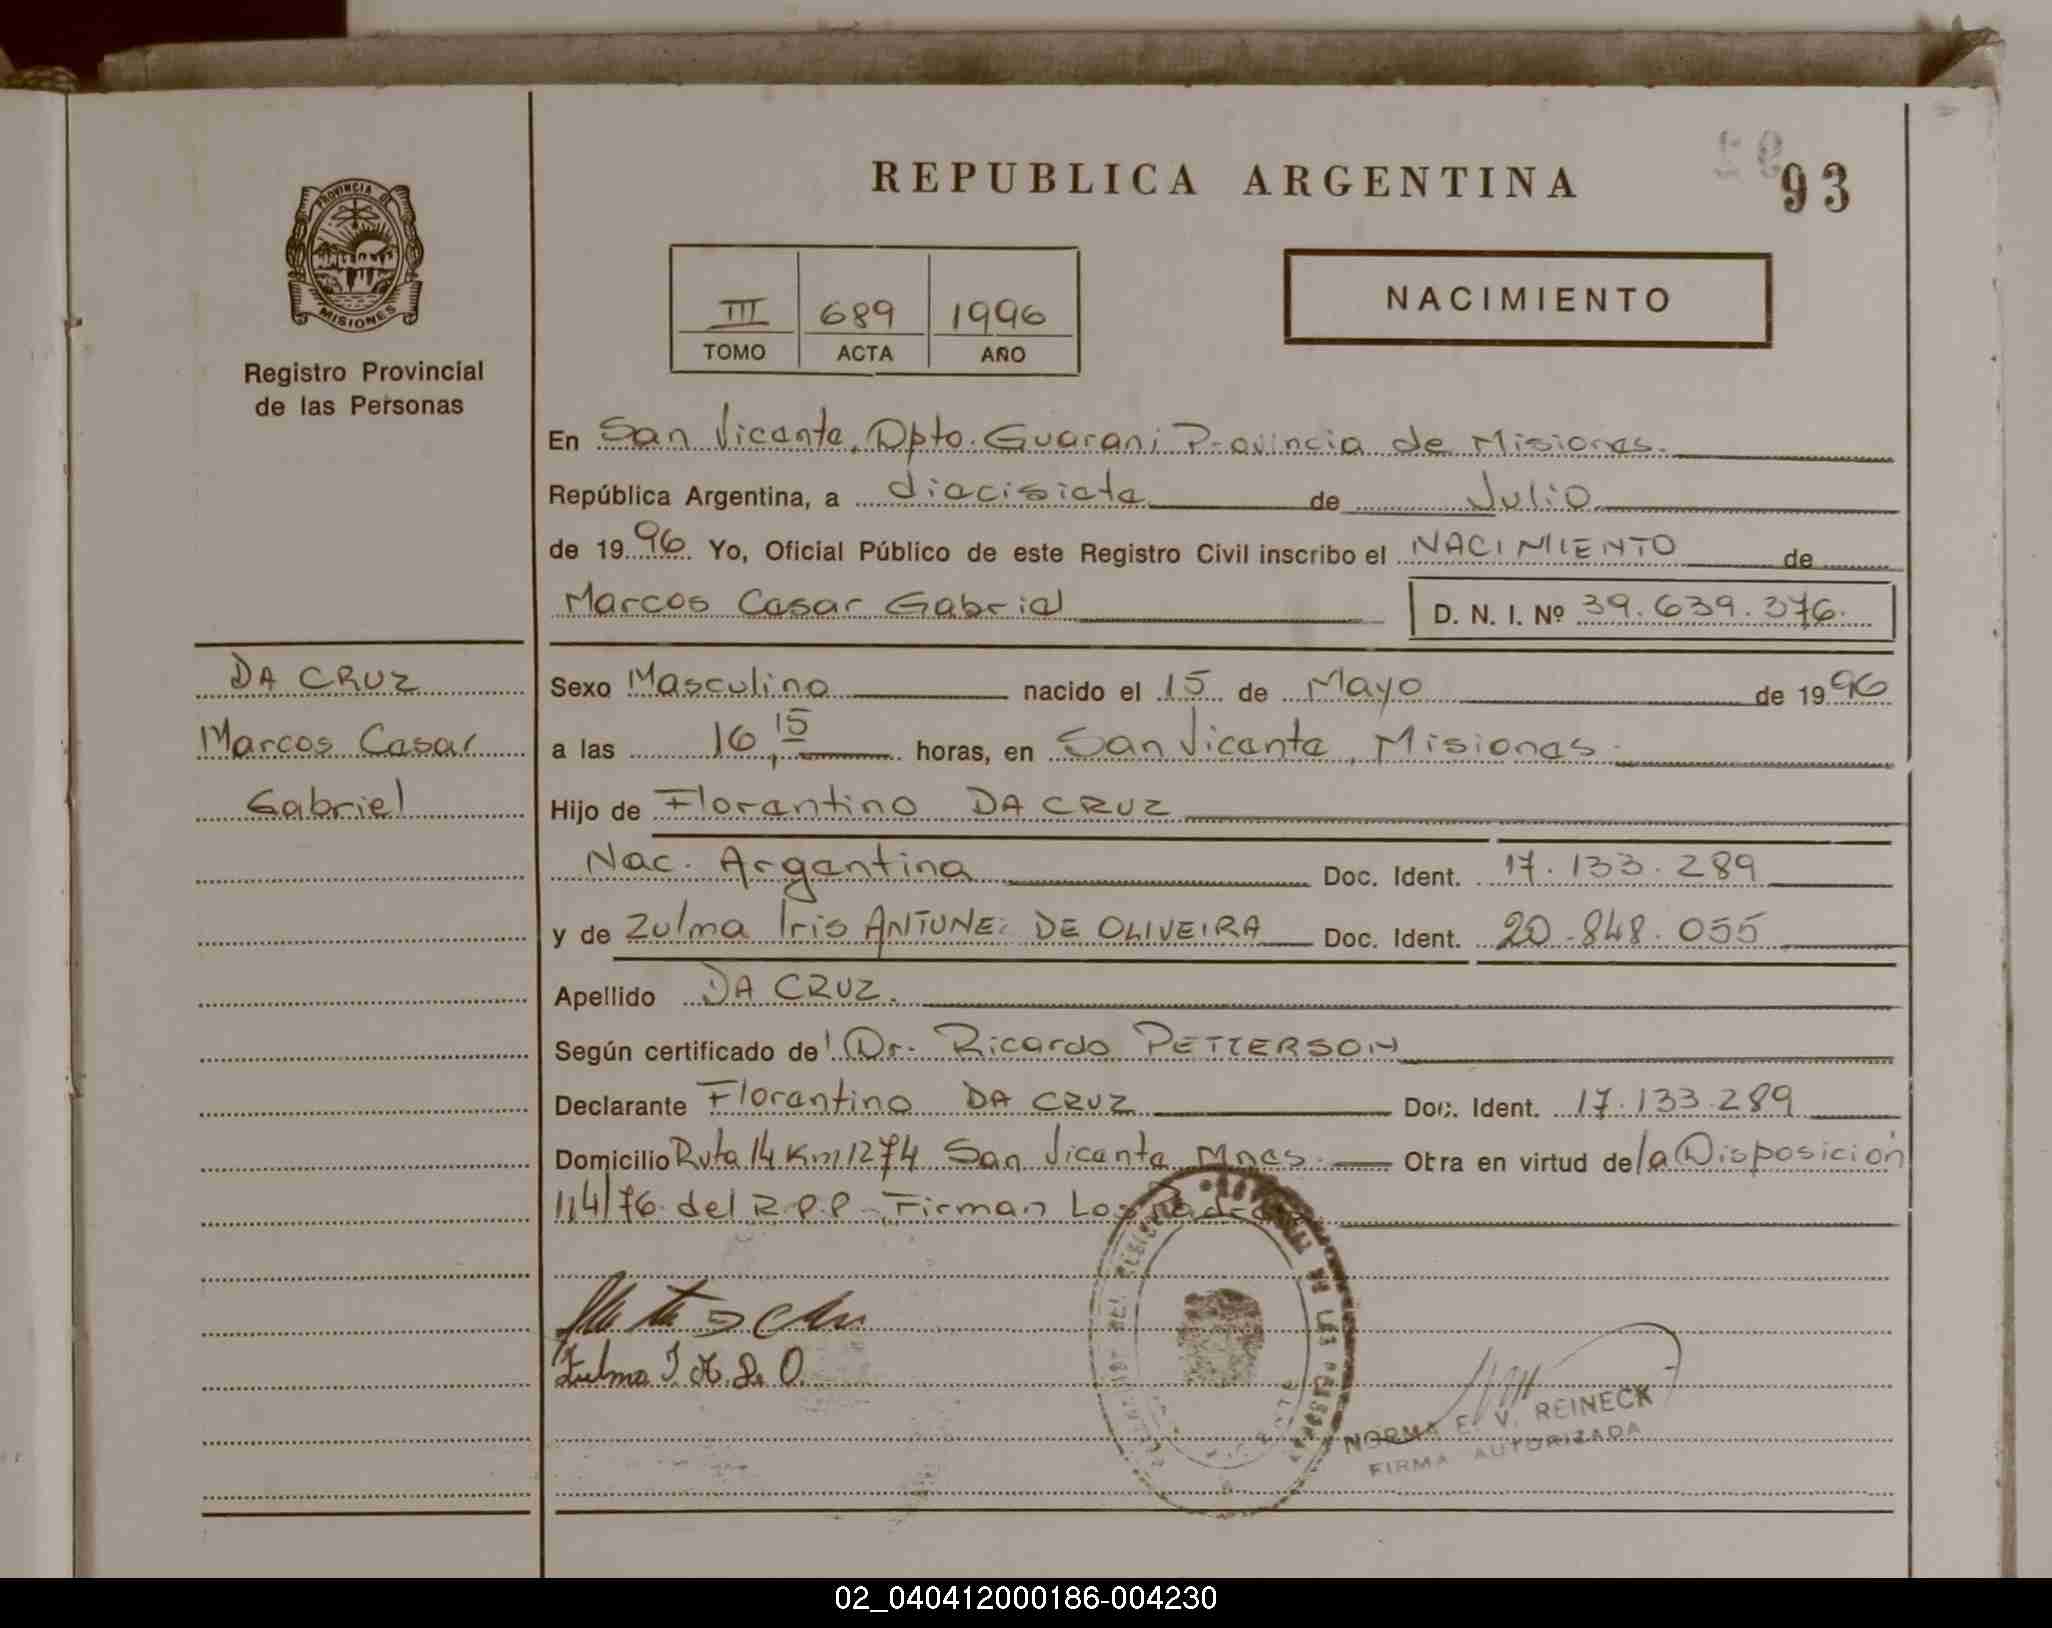 REPUBLICA ARGENTINA
93
PROVINCIA DE
MISIONES
Registro Provincial
de las Personas
III 689 1996
TOMO ACTA AÑO
NACIMIENTO
En San Vicente, Dpto. Guarani Provincia de Misiones.
República Argentina, a diecisiete de Julio
de 1996 Yo, Oficial Público de este Registro Civil inscribo el NACIMIENTO de
Marcos Cesar Gabriel D. N. I. Nº 39.639.376.
DA CRUZ
Marcos Cesar
Gabriel
Sexo Masculino nacido el 15 de Mayo de 1996
a las 16,15 horas, en San Vicente, Misiones.
Hijo de Florentino DA CRUZ
Nac. Argentina Doc. Ident. 17.133.289
y de Zulma Iris ANTUNEZ DE OLIVEIRA Doc. Ident. 20.848.055
Apellido DA CRUZ.
Según certificado de Dr. Ricardo PETTERSON
Declarante Florentino DA CRUZ Doc. Ident. 17.133.289
Domicilio Ruta 14 Km 1274 San Vicente Mnes. Obra en virtud de la Disposición
114/76 del R.P.P. Firman Los Padres
Zulma I. A. D. O.
NORMA E. V. REINECK
FIRMA AUTORIZADA
02_040412000186-004230